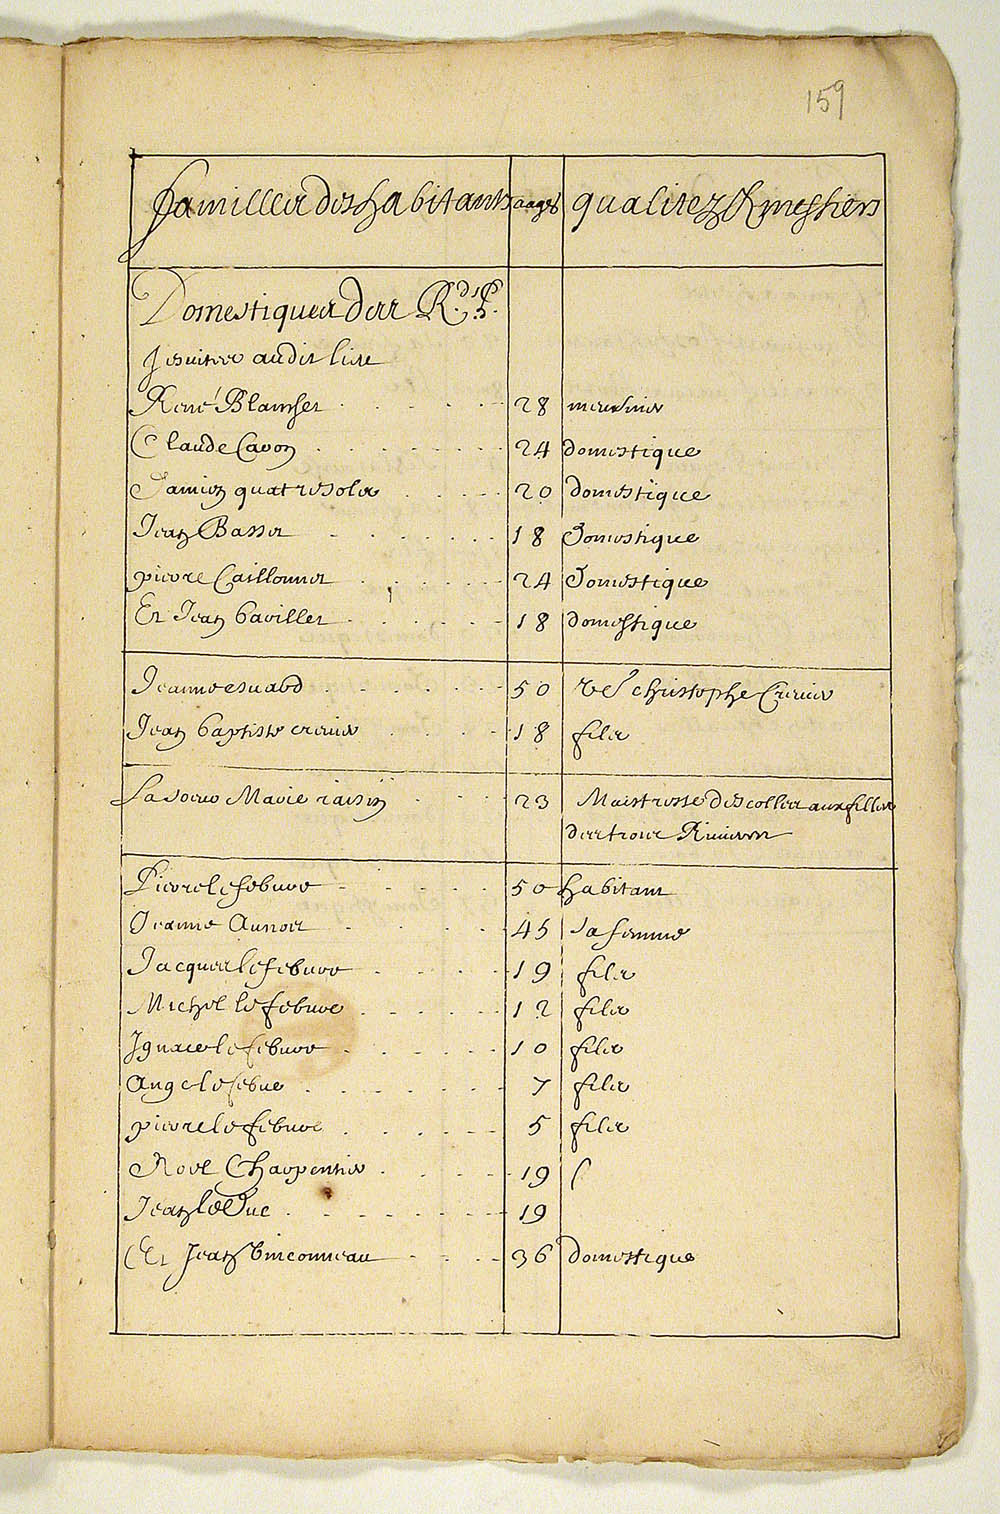 159
Familles des habitants aages qualitez & mestiers
Domestiques des R.ds P.
Jesuites audit lieu
René Blanchet 28 meusnier
Claude Caron 24 domestique
Damien quatresols 20 domestique
Jean Basset 18 domestique
pierre Caillonnet 24 domestique
Et Jean baviller 18 domestique
Jeanne esnard 50 vef christophe Crevier
Jean baptiste crevier 18 fils
La soeur Marie raisin 23 Maistresse descolles aux filles
des trois Rivieres
Pierre lefebure 50 habitant
Jeanne Aunois 45 sa femme
Jacques lefebure 19 fils
Michel lefebure 12 fils
Ignace lefebure 10 fils
Ange lefebue 7 fils
pierre lefebure 5 fils
Noel Charpentier 19
Jean le Duc 19
Et Jean binconneau 36 domestique